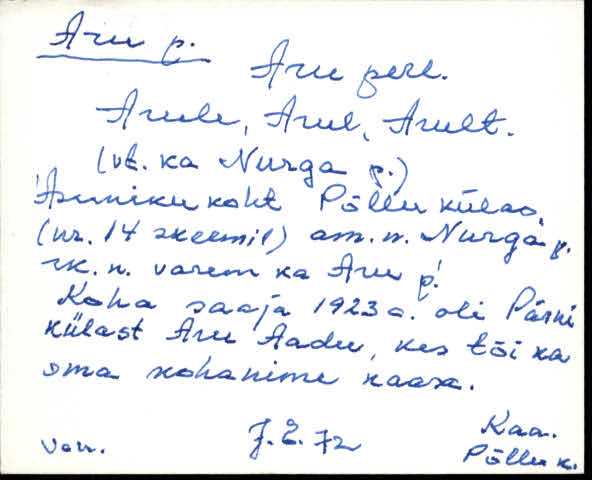 Aru p.
Aru pere.
Arule, Arul, Arult.
(vt. ka Nurga p.)
Asuniku koht Põllu külas,
(nr. 14 skeemil) am. n. Nurga p.
rk. n. varem ka Aru p.
Koha saaja 1923 a. oli Pärni
külast Aru Aadu, kes tõi ka
oma kohanime kaasa.
J.E. 72
Kaa.
Põllu k.